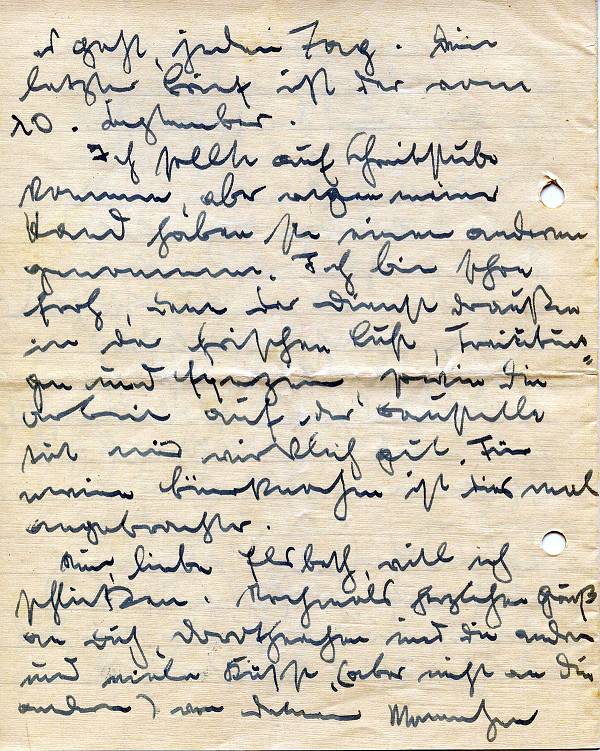 es geht, jeden Tag. Dein
letzter Brief ist der vom
20. September.
Ich sollte auf Schreibstube
kommen, aber wegen meiner
Hand haben sie einen anderen
genommen. Ich bin schon
froh, denn der Dienst draußen
in der frischen Luft,
und sowie die
Arbeit auf der Baustelle
tut mir wirklich gut. Für
meine Büroknochen ist dies mal
angebrachter.
Nun, liebe Elsbeth, will ich
schließen. Nochmals herzliche Grüße
an Dich, Dorotheachen und die andern
und viele Küsse, (aber nicht an die
andern) von Deinem